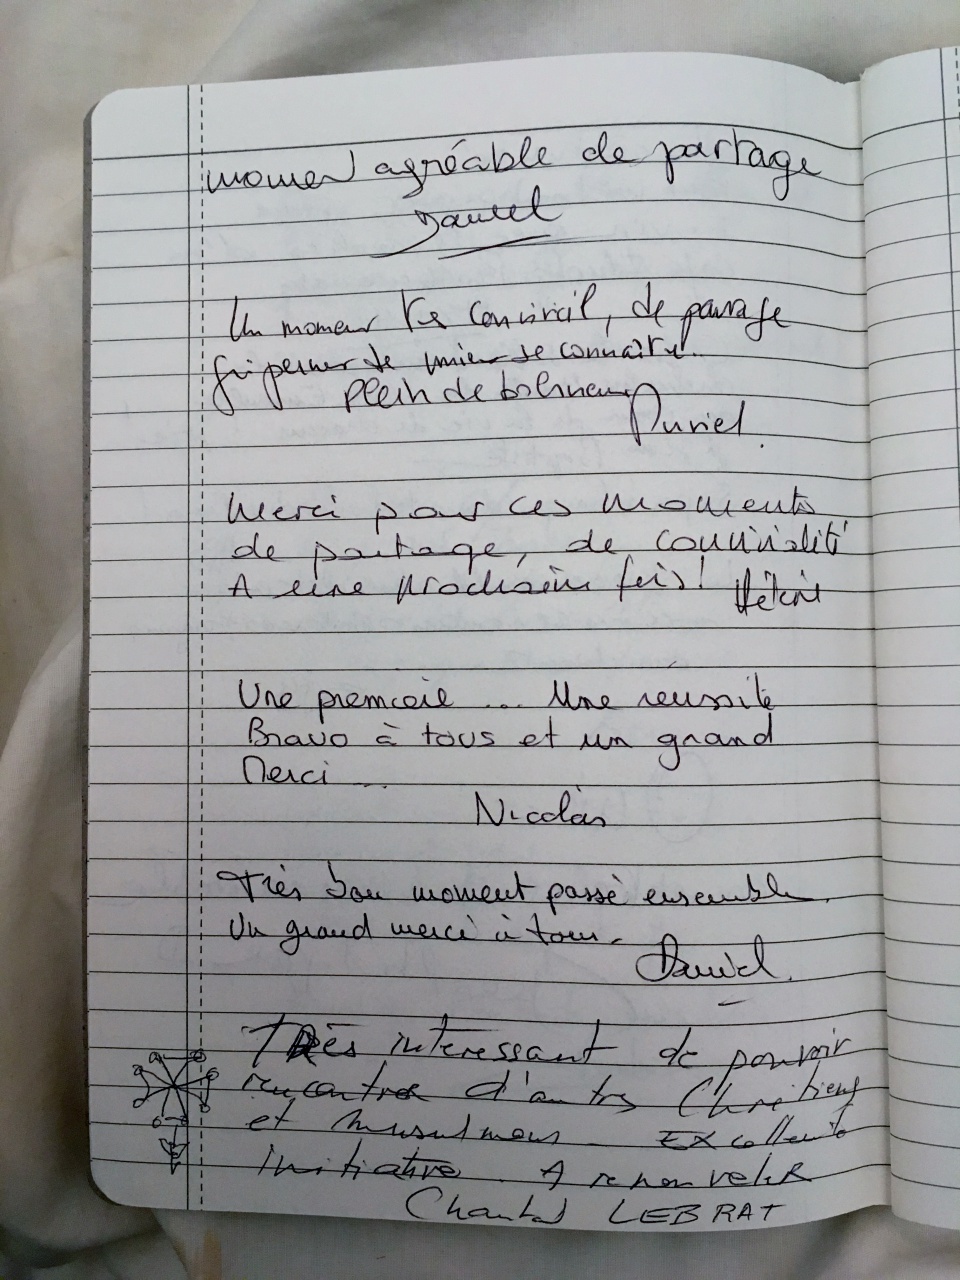 momen agréable de partage
Daniel
Un moment très convivial, de partage
qui permet de mieux se connaître.
plein de bonheur
Muriel.
Merci pour ces moments
de partage, de convivialité
A une prochaine fois!
Une première ... Une réussite
Bravo à tous et un grand
Merci ...
Nicolas
Très bon moment passé ensemble.
Un grand merci à tous.
Daniel.
TRès intéressant de pouvoir
rencontrer d'autres Chrétiens
et Musulmans Excellente
initiative. A renouveler
Chantal LEBRAT